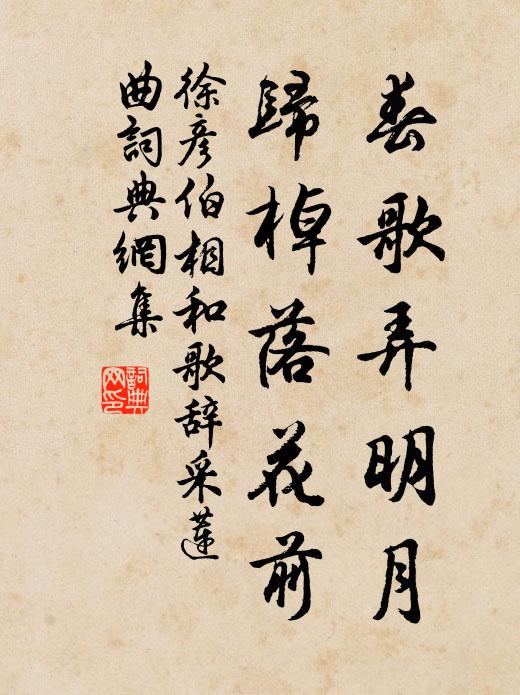 春歌弄明月
歸棹落花前
徐彥伯相和歌辞采蓮
曲詞典網集
詞典
网印